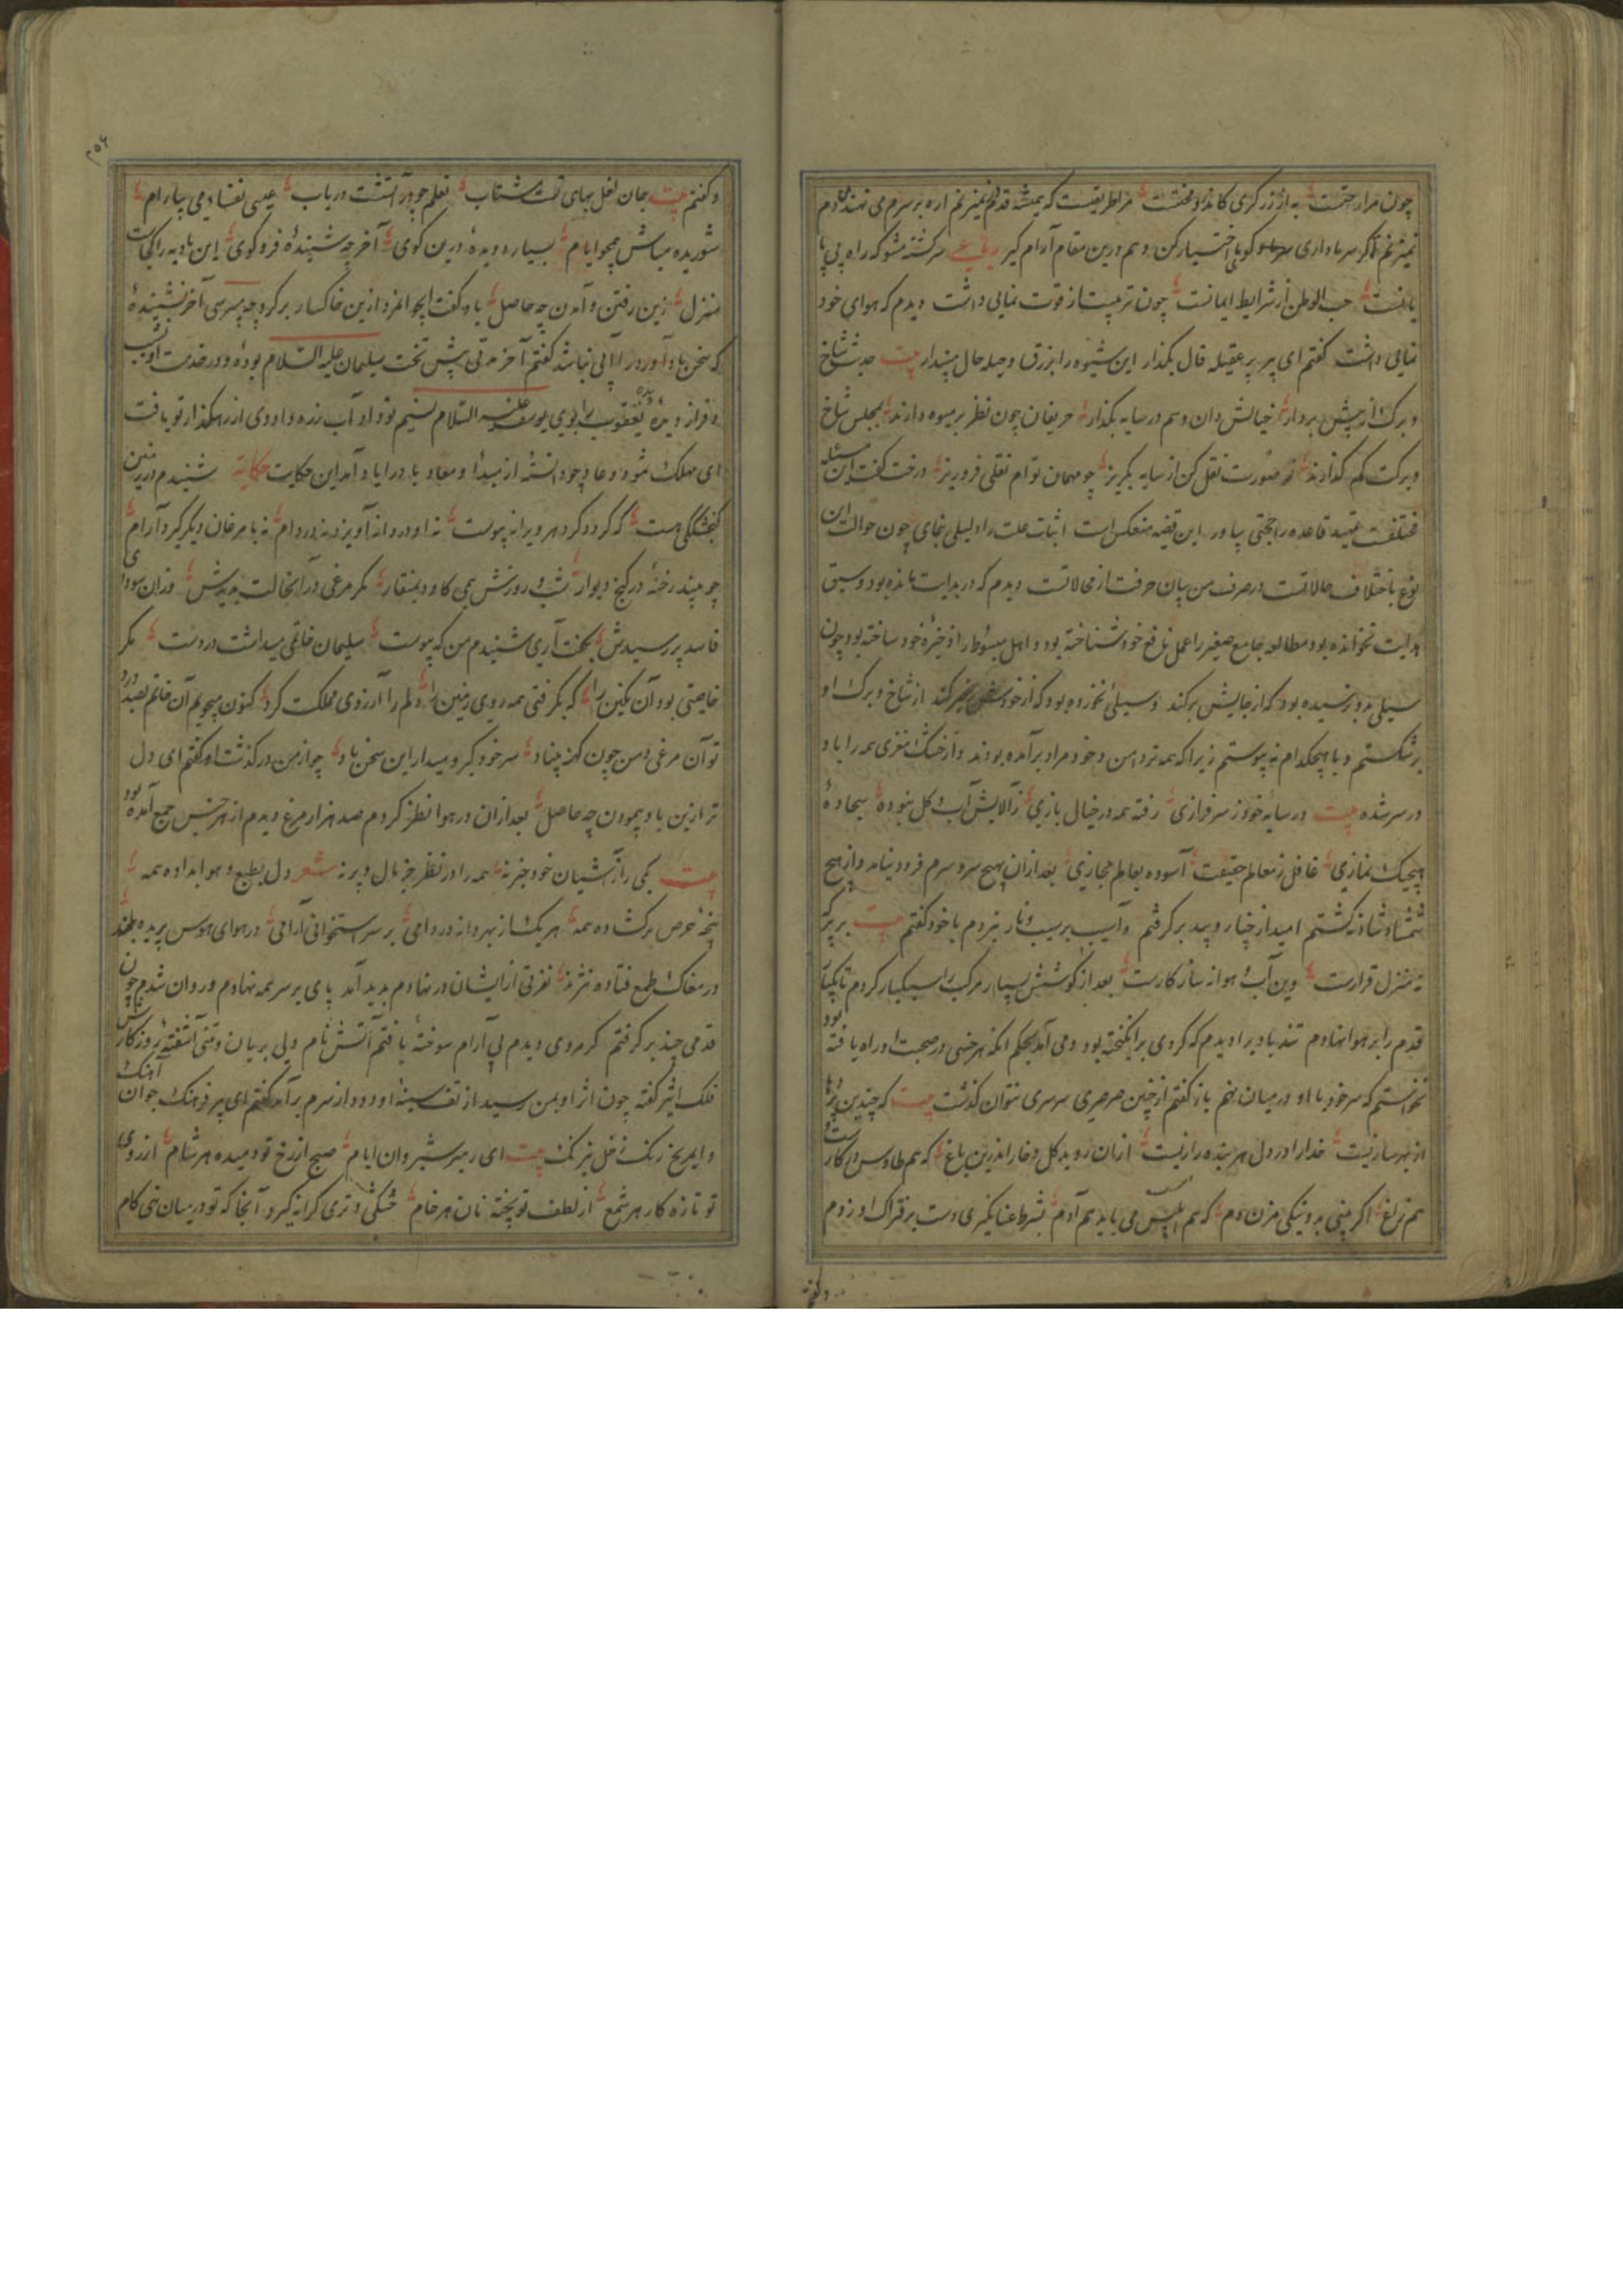 چون مرا رحمتست به از زر کزی کاندر و محنتست مرا طریقیست که همیشه قدم نمیزنم اره بر سرم می نهند دم
نمیزنم اگر سر ما داری اختیار کن و هم درین مقام آرام گیر رباعی سرگشته مشو که راه بی پا
یانست حب الوطن از شرایط ایمانست چون تربیت از قوت نمایی داشت دیدم که هوای خود
نمایی داشت گفتم ای پیر پر عقیله قال بگذار این شیوه را بزرق و حیله حال مپندار بیت حدیث شاخ
و برک از پیش بردار خیالش دان و سم در سایه بگذار حریفان چون نظر بر میوه دارند بمجلس شاخ
و برکت کم گذارند تو صورت نقل کن از سایه بگریز چو مهمان توام نقلی فرو ریز درخت گفت این مسئله
مختلفست تمهید قاعده را حجتی بیاور این قضیه منعکس است اثبات علت را دلیلی بنمای چون حوالت این
نوع باختلاف حالاتست در صرف من بیان حرفت از محالاتست دیدم که در بدایت مانده بود و سبق
هدایت نخوانده بود مطالعه جامع صغیر را عمل نافع خود شناخته بود و اصل مبسوط را ذخیره خود ساخته بود چون
سیلی بدو نرسیده بود که از جایش برکند و سیلی نخورده بود که از خود کند از شاخ و برک او
برشکستم و با هیچکدام نه پیوستم زیرا که همه تر دامن و خود مراد برآمده بودند و از خشک مغزی همه را باد
در سر شده بیت در سایه خود ز سرفرازی رفته همه در خیال بازی ز آلایش آب و کل نبوده سجاده
هیچیک نمازی غافل ز معالم حقیقت آسوده بعالم مجازی بعد از آن بهیچ سرو سرم فرو نیامد و از هیچ
شمشاد شاد نکشتم امید از چنار و بید برگرفتم و آسیب بر سیب و نار نزدم با خود گفتم بیت
نه منزل قرارست وین آب و هوا نه سازگارست بعد از کوشش بسیار مرکب را سبکبار کردم تا یکباره
قدم را بر هوا نهادم تند باد را دیدم که گردی برانگیخته بود و می آمد بحکم آنکه هر خسی در صحبت او راه یافته بود
نخواستم که سر خود با او در میان نهم باز گفتم از چنین صرصری سرسری نتوان گذشت بیت که چندین
از بهر سازیست خدا را در دل هر بنده رازیست از آن روید کل و خار اندرین باغ که هم طاوس در کارست و
هم زاغ اگر بینی بد و نیکی مزن دم که هم ابلیس می باید هم آدم بشرط عنانگیری دست بر فتراک او زدم
و گفتم
۲۵۶
و گفتم بیت جان نعل بهای تست مشتاب نعلم چو در آتشست دریاب عیسی نفسا دمی بیارام
شوریده مباش همچو ایام بسیار دویده درین کوی آخر چه شنیده فرو کوی این بادیه را کجاست
منزل زین رفتن و آمدن چه حاصل باد گفت ای جوانمرد از من خاکسار برگرد چه پرسی آخر نشنیده
که سخن باد آورد را آبی نباشد گفتم آخر مدتی پیش تخت سلیمان علیه السلام بوده و در خدمت او نشیب
و فراز دیده دیده یعقوب را بوی یوسف علیه السلام نسیم تو داد آب زره داودی از رهگذار تو یافت
ای مهلک ثمود و عاد چو دانسته از مبدا و معاد باد را یاد آمد این حکایت حکایه شنیدم در زمین
گنجشککی هست که گردد گرد هر ویرانه پیوست نه او در دانه آویزد نه در دام نه با مرغان دیگر گیرد آرام
چو بیند رخنه در کنج دیوار شب و روزش همی کاود بمنقار مگر مرغی در آن حالت بدیدش وزان سودای
فاسد بررسیدش بگفت آری شنیدم من که پیوست سلیمان خاتمی میداشت در دست مگر
خاصیتی بود آن نگین را که بگرفتی همه روی زمین را دلم را آرزوی مملکت کرد کنون میجویم آن خاتم بصد درد
تو آن مرغی و من چون کهنه بنیاد سر خود گیر و میدار این سخن یاد چو از من درگذشت او گفتم ای دل
ترا زین باد پیمودن چه حاصل بعد از آن در هوا نظر کردم صد هزار مرغ دیدم از هر جنس جمع آمده بود
بیت یکی را ز آشیان خود خبر نه همه را در نظر جز بال و پر نه شعر دل بطمع و هوا بداده همه
پنجه حرص بر گشاده همه هر یک از بهر دانه در دامی بر سر استخوانی آرامی در هوای هوس پریده بلند
در مغاک طمع فتاده نژند نفرتی از ایشان در نهادم بدید آمد پای بر سر همه نهادم و روان شدم چون
قدمی چند برگرفتم گرمروی دیدم بی آرام سوخته یافتم آتش نام دلی بریان و تنی آشفته روزگارش
فلک اثیر گفته چون اثر او بمن رسید از تف سینه او دود از سرم برآمد گفتم ای پیر فرهنگ جوان آهنگ
و ای مریخ رنگ زحل نیرنگ بیت ای رهبر شبروان ایام صبح از رخ تو دمیده هر شام از روی
تو تازه کار هر شمع از لطف تو پخته نان هر خام خشکی و تری کرانه گیرد آنجا که تو در میان نهی کام